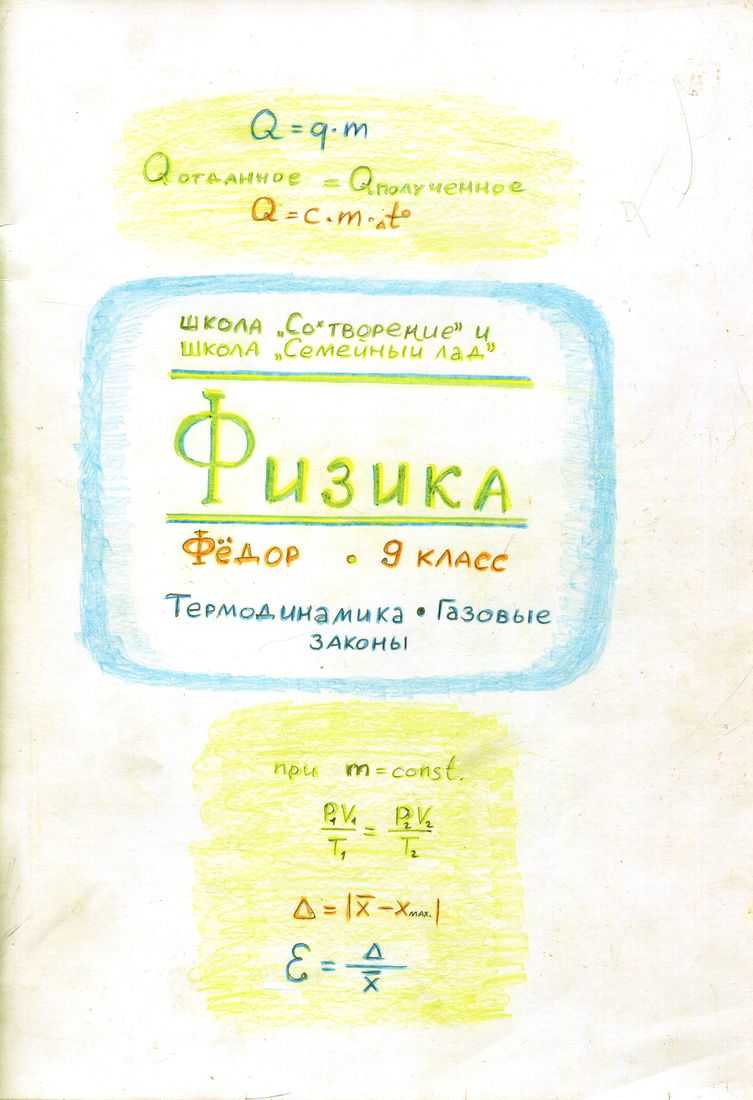 Q = q · m
Q отданное = Q полученное
Q = c · m · Δt°
школа „Со*творение” и
школа „Семейный лад”
Физика
Фёдор · 9 класс
Термодинамика • Газовые
законы
при m = const.
P₁V₁/T₁ = P₂V₂/T₂
Δ = |x̄ – x мах.|
ε = Δ/x̄